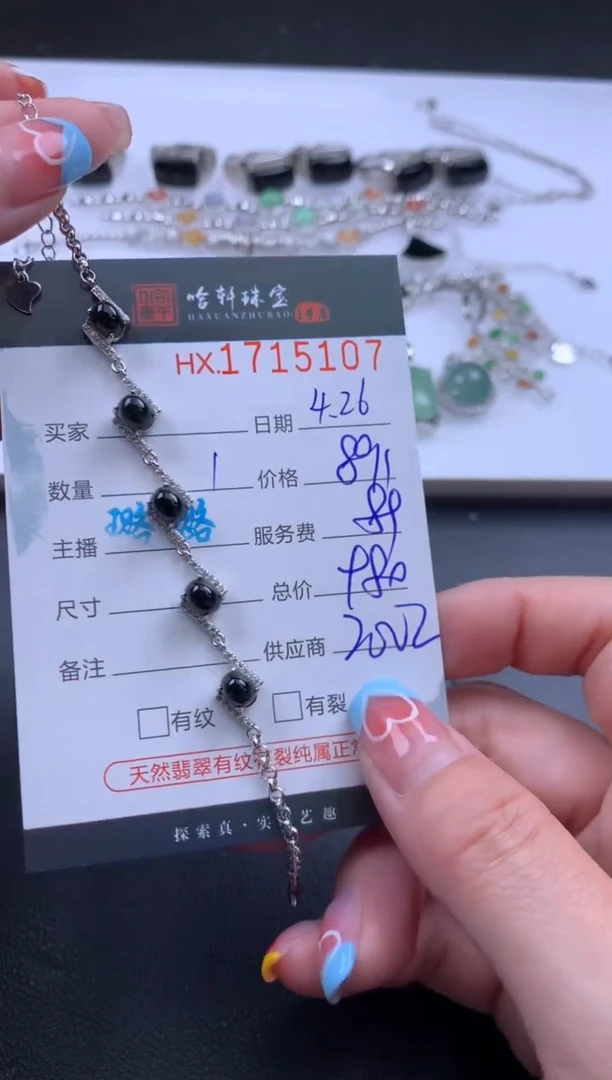 哈轩珠宝
HAXUANZHUBAO 1号店
HX.1715107
买家 日期 4.26
数量 1 价格 891
主播 璐璐 服务费 89
尺寸 总价 980
备注 供应商 2002
有纹 有裂
天然翡翠有纹有裂纯属正常
探索真·实 艺趣